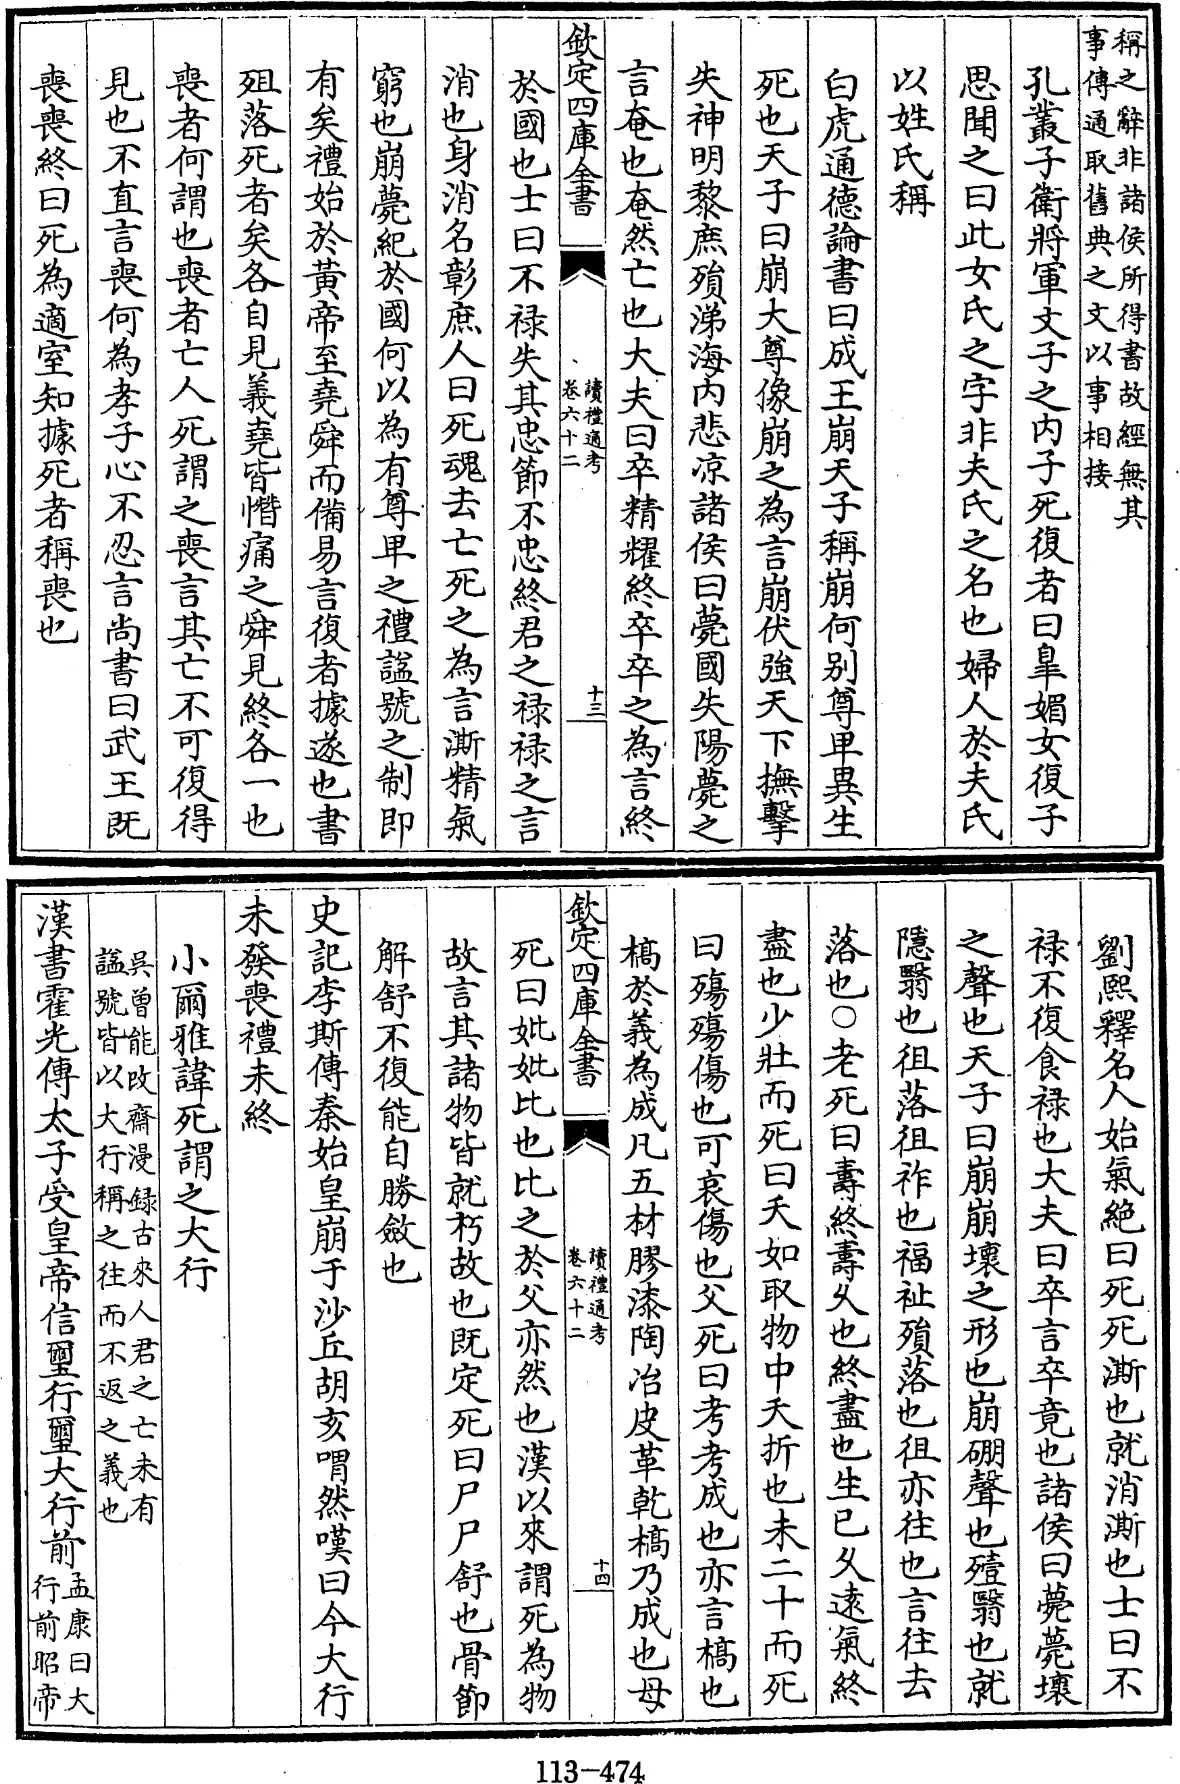 稱之辭非諸侯所得書故經無其
事傳通取舊典之文以事相接
孔叢子衛將軍文子之内子死復者曰臯媚女復子
思聞之曰此女氏之字非夫氏之名也婦人於夫氏
以姓氏稱
白虎通德論書曰成王崩天子稱崩何别尊卑異生
死也天子曰崩大尊像崩之為言崩伏強天下撫擊
失神明黎庶殞涕海内悲凉諸侯曰薨國失陽薨之
言奄也奄然亡也大夫曰卒精耀終卒卒之為言終
欽定四庫全書
讀禮通考
卷六十二
十三
於國也士曰不禄失其忠節不忠終君之禄禄之言
消也身消名彰庶人曰死魂去亡死之為言澌精氣
窮也崩薨紀於國何以為有尊卑之禮諡號之制即
有矣禮始於黃帝至堯舜而備易言復者據遂也書
殂落死者矣各自見義堯皆憯痛之舜見終各一也
喪者何謂也喪者亡人死謂之喪言其亡不可復得
見也不直言喪何為孝子心不忍言尚書曰武王既
喪喪終曰死為適室知據死者稱喪也
劉熙釋名人始氣絶曰死死澌也就消澌也士曰不
禄不復食禄也大夫曰卒言卒竟也諸侯曰薨薨壞
之聲也天子曰崩崩壞之形也崩硼聲也殪翳也就
隱翳也徂落徂祚也福祉殞落也徂亦往也言往去
落也○老死曰壽終壽夂也終盡也生已夂遠氣終
盡也少壯而死曰夭如取物中夭折也未二十而死
曰殤殤傷也可哀傷也父死曰考考成也亦言槁也
槁於義為成凡五材膠漆陶冶皮革乾槁乃成也母
欽定四庫全書
讀禮通考
卷六十二
十四
死曰妣妣比也比之於父亦然也漢以來謂死為物
故言其諸物皆就朽故也既定死曰尸尸舒也骨節
解舒不復能自勝斂也
史記李斯傳秦始皇崩于沙丘胡亥喟然嘆曰今大行
未發喪禮未終
小爾雅諱死謂之大行
吳曾能改齋漫録古來人君之亡未有
諡號皆以大行稱之往而不返之義也
漢書霍光傳太子受皇帝信璽行璽大行前孟康曰大
行前昭帝
113-474